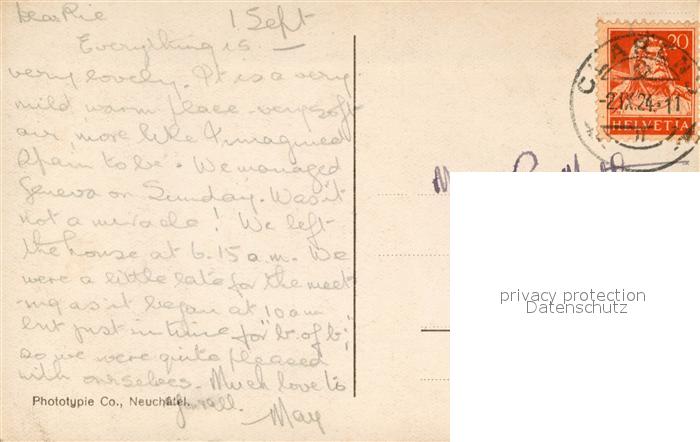 Dear Rie 1 Sept
Everything is
very lovely. It is a very
mild warm place - very soft
air more like I imagined
Spain to be. We managed
Geneva on Sunday. Was it
not a miracle! We left
the house at 6.15 a.m. We
were a little late for the meet
-ing as it began at 10 a.m
but just in time for "b. of b."
so we were quite pleased
with ourselves. Much love to
you all.
May
Phototypie Co., Neuchâtel.
20
CLARENS
-2.IX.24.-11
HELVETIA
privacy protection
Datenschutz